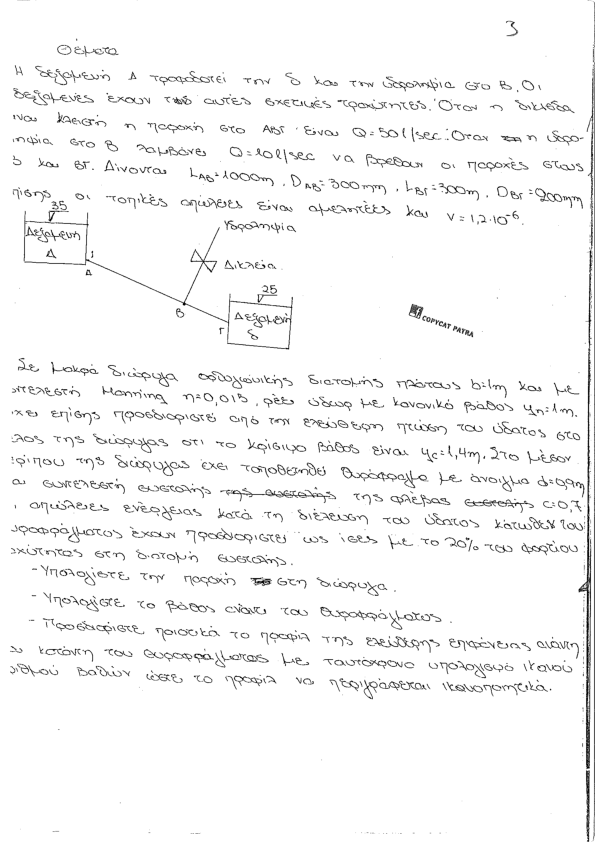 3
Θέματα
Η δεξαμενή Δ τροφοδοτεί την δ και την υδροληψία στο Β. Οι
δεξαμενές έχουν αυτές σχετικές τραχύτητες. Όταν η δικλείδα
ναι κλειστή η παροχή στο ΑΒΓ είναι Q=50l/sec. Όταν η υδρο-
ηψία στο Β λαμβάνει Q=10l/sec να βρεθούν οι παροχές στους
και ΒΓ. Δίνονται LAB=1000m, DAB=300mm, LΒΓ=300m, DΒΓ=200mm
πίσης οι τοπικές απώλειες είναι αμελητέες και ν=1,2·10⁻⁶.
35
Υδροληψία
Δεξαμενή
Δ
Δικλεία
Δ
25
Β
Γ
Δεξαμενή
δ
COPYCAT PATRA
Σε μακρά διώρυγα ορθογωνικής διατομής πλάτους b=1m και με
ντελεστή Manning η=0,015, ρέει ύδωρ με κανονικό βάθος yn=1m.
χει επίσης προσδιοριστεί από την ελεύθερη πτώση του ύδατος στο
λος της διώρυγας οτι το κρίσιμο βάθος είναι yc=1,4m. Στο μέσον
ρίπου της διώρυγας έχει τοποθετηθεί θυρόφραγμα με άνοιγμα d=0,9m
αι συντελεστή συστολής της φλέβας c=0,7
απώλειες ενέργειας κατά τη διέλευση του ύδατος κάτωθεν του
υροφράγματος έχουν προσδιοριστεί ως ίσες με το 20% του φορτίου
αχύτητας στη διατομή συστολής.
- Υπολογίστε την παροχή στη διώρυγα.
- Υπολογίστε το βάθος ανάντι του θυροφράγματος.
- Προσδιορίστε ποιοτικά το προφίλ της ελεύθερης επιφάνειας ανάντη
κατάντη του θυροφράγματος με ταυτόχρονο υπολογισμό ικανού
ριθμού βαθών ώστε το προφίλ να περιγράφεται ικανοποιητικά.